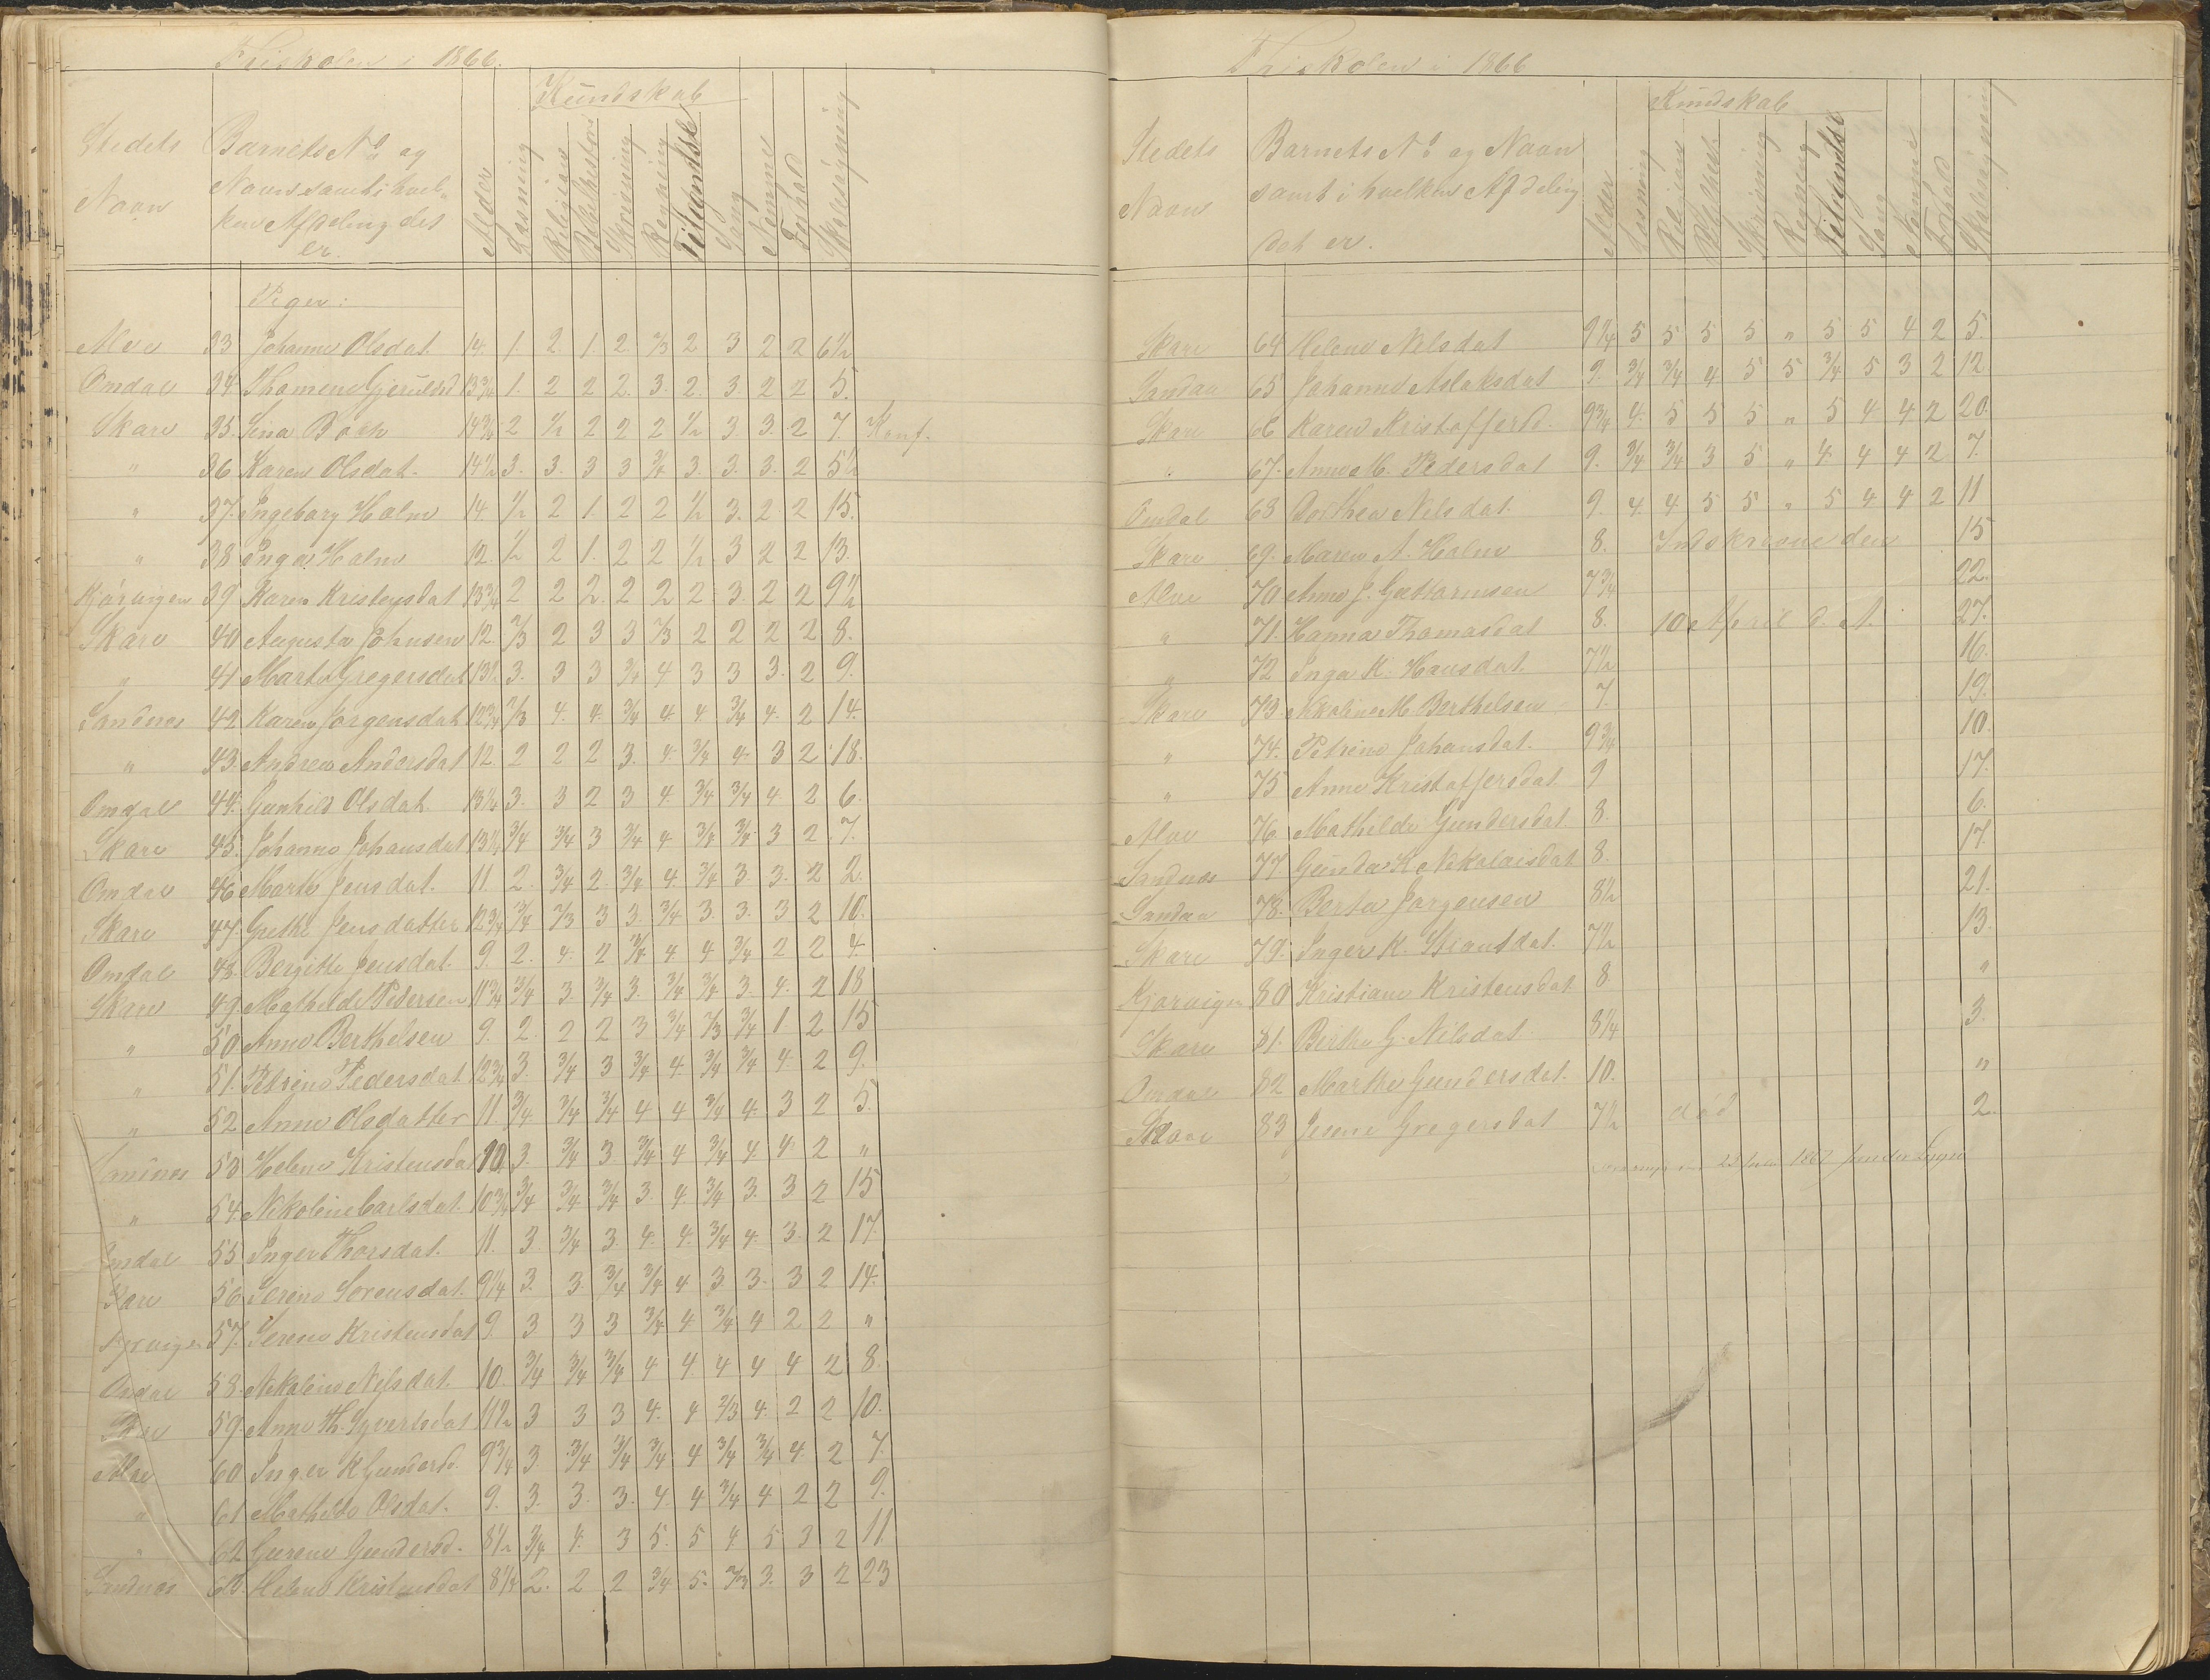 Friskolen i 1866.
Kundskab
Stedets Navn
Barnets No og Navn samt i hvilken Afdeling det er.
Alder Læsning Religion Bibelhistori Skrivning Regning Tilegnelse Sang Nemme Forhold Skolesøgning
Piger:
Alve 33 Johanne Olsdat. 14. 1. 2. 1. 2. 2/3 2 3 2 2 6 1/2
Omdal 34. 13 3/4 1. 2 2 2. 3. 2. 3. 2 2 5.
Skare 35. Sina Bach 14 3/4 2 1/2 2 2 2 1/2 3 3. 2 7. Konf.
" 36 Karen Olsdat. 14 1/2 3. 3. 3 3 3/4 3. 3. 3. 2 5 1/2
" 37. Ingeborg Holm 14. 1/2 2 1. 2 2 1/2 3. 2 2 15.
" 38 Inga Holm 12. 1/2 2 1. 2 2 1/2 3 2 2 13.
39 Karen Kristensdat 13 3/4 2 2 2. 2 2 2. 3. 2 2 9 1/2
Skare 40 Augusta Johnsen 12. 2/3 2 3 3 2/3 2 2 2 2 8.
" 41 Marte Gregersdat 13 1/2 3. 3 3 3/4 4 3 3 3. 2 9.
Sandnes 42. Karen Jorgensdat 12 3/4 2/3 4. 4. 3/4 4. 4. 3/4 4. 2 14.
" 43. Andrea Andersdat 12. 2 2 2 3. 4. 3/4 4. 3 2 18.
Omdal 44. Gunhild Olsdat. 13 1/4 3. 3 2 3 4. 3/4 3/4 4 2 6.
Skare 45. Johanne Johansdat 13 1/4 3/4 3/4 3 3/4 4 3/4 3/4 3 2. 7.
Omdal 46 Marte Jensdat. 11. 2. 3/4 2. 3/4 4. 3/4 3 3. 2 2.
Skare 47. Grethe Jensdatter 12 3/4 3/4 2/3 3 3. 3/4 3. 3. 3 2 10.
Omdal 48. Bergitte Jensdat. 9. 2. 4. 2 3/4 4 4 3/4 2 2 4.
Skare 49. Mathilde Pedersen 11 3/4 3/4 3. 3/4 3. 3/4 3/4 3. 4. 2 18
" 50 Anne Berthelsen 9. 2. 2 2 3 3/4 2/3 3/4 1. 2 15
" 51. Petrine Pedersdat 12 3/4 3. 3/4 3 3/4 4. 3/4 3/4 4. 2 9.
" 52 Anne Olsdatter 11. 3/4 3/4 3/4 4 4 3/4 4. 3 2 5.
53 Helene Kristensdat 10. 3. 3/4 3. 3/4 4 3/4 4 4 2 "
" 54. Nikoline Carlsdat. 10 3/4 3/4 3/4 3/4 3. 4. 3/4 3. 3 2 15
Omdal 55 Inger Thorsdat. 11. 3. 3/4 3. 4. 4. 3/4 4. 3. 2 17.
Skare 56 Serine Sorensdat. 9 1/4 3. 3. 3/4 3/4 4 3 3. 3 2 14.
57. Serene Kristensdat 9. 3 3 3 3/4 4. 3/4 4 2 2 "
Omdal 58. Nikoline Nilsdat. 10. 3/4 3/4 3/4 4 4. 4 4 4 2 8.
59. Anne Th. Syvertsdat 11 1/2 3 3 3 4. 4 2/3 4. 2 2 10.
Alve 60 Inger K Gundersd. 9 3/4 3. 3/4 3/4 3/4 4 3/4 3/4 4. 2 7.
" 61 Mathilde Olsdat. 9. 3. 3. 3. 4. 4 3/4 4 2 2 9.
" 62 Gundersd. 8 1/2 3/4 4. 3 5. 5 4. 5 3 2 11
Sandnes 63. Helene Kristensdat 8 1/4 2. 2 2 3/4 5. 2/3 3. 3 2 23
Friskolen i 1866
Kundskab
Stedets Navn
Barnets No og Navn samt i hvilken Afdeling det er.
Alder Læsning Religion Bibelhisth. Skrivning Regning Tilegnelse Sang Nemme Forhold Skolesøgning
Skare 64 Helene Nilsdat 9 1/4 5 5 5 5 " 5 5 4 2 5.
Sandaa 65 Johanne Aslaksdat 9. 3/4 3/4 4 5 5 3/4 5 3 2 12
Skare 66 Karen Kristoffersd. 9 3/4 4. 5 5 5 " 5 4 4 2 20.
" 67. Anne M. Pedersdat 9. 3/4 3/4 3 5 " 4. 4 4 2 7.
Omdal 68 Dorthea Nilsdat. 9. 4. 4 5 5 " 5 4 4 2 11
Skare 69. Maren A. Holm 8. Indskrevne den 15
Alve 70 Anne J. Guttormsen 7 3/4 22.
" 71. Hanna Thomasdat 8. 10 April d. A. 27.
" 72 Inga K. Hansdat. 7 1/2 16.
Skare 73. Nikoline M. Berthelsen 7. 19.
" 74. Petrine Johansdat. 9 3/4 10.
" 75 Anne Kristoffersdat. 9 17.
Alve 76 Mathilde Gundersdat 8. 6.
Sandnes 77 Gunda K Nikolaisdat 8. 17.
Sandaa 78. Berta Jorgensen 8 1/2 21.
Skare 79. Inger K. 7 1/2 13.
Kjorvigen 80 Kristiane Kristensdat 8. "
Skare 81. Birthe G. Nilsdat 8 1/4 3.
Omdal 82 Marthe Gundersdat. 10. "
Skare 83 Gregersdat 7 1/2 død 2.
23 1867